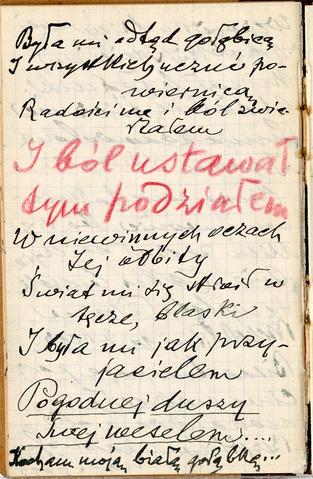 Była mi odtąd gołębicą
I wszystkich uczuć po-
wiernicą
Radości me i ból zwie-
rzałem
I ból ustawał
tym podziałem
W niewinnych oczach
Jej odbity
Świat mi się stroił w
tęcze, blaski
I była mi jak przy-
jacielem
Pogodnej duszy
swej weselem...
Kocham moją białą gołąbkę...